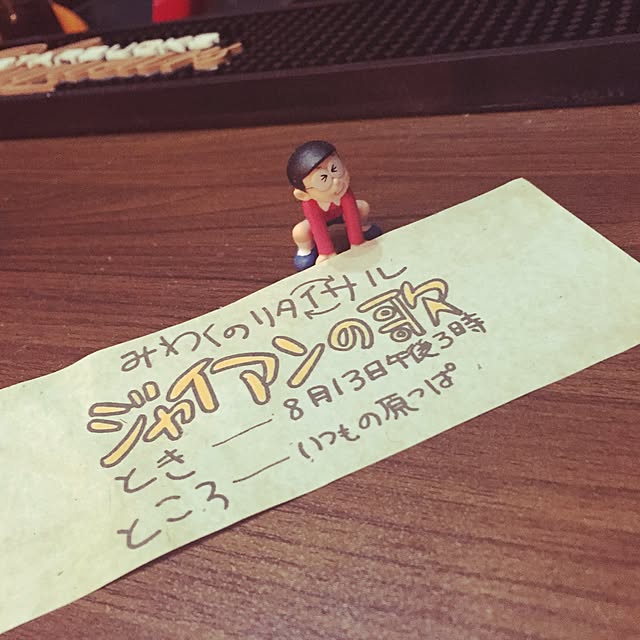 みわくのリタイサル
ジャイアンの歌
とき──8月13日午後3時
ところ──いつもの原っぱ